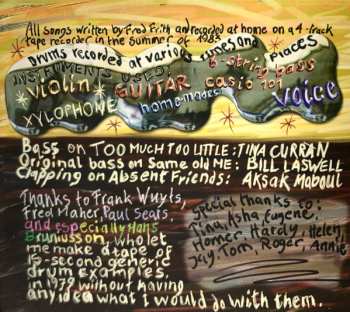 All songs written by Fred Frith and recorded at home on a 4-track
tape recorder in the summer of 1983
Drums recorded at various times and places
INSTRUMENTS USED:
violin GUITAR 6-string bass
casio 101
XYLOPHONE homemades voice
Bass on TOO MUCH TOO LITTLE: TINA CURRAN
Original bass on Same old ME: BILL LASWELL
Clapping on Absent Friends: AKSAK Maboul
Thanks to Frank Wuyts,
Fred Maher, Paul Sears,
and especially Hans
Bruniusson, who let
me make a tape of
15-second generic
drum examples,
in 1979 without having
any idea what I would do with them.
Special thanks to:
Tina, Asha, Eugene,
Homer, Hardy, Helen,
Jay, Tom, Roger, Annie